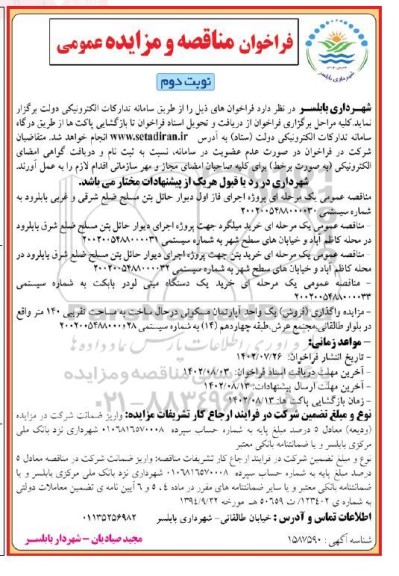 فراخوان مناقصه و مزایده عمومی
شهرداری بابلسر
نوبت دوم
شهـرداری بابلسـر در نظر دارد فراخوان های ذیل را از طریق سامانه تدارکات الکترونیکی دولت برگزار
نماید.کلیه مراحل برگزاری فراخوان از دریافت و تحویل اسناد فراخوان تا بازگشایی پاکت ها از طریق درگاه
سامانه تدارکات الکترونیکی دولت (ستاد) به آدرس www.setadiran.ir انجام خواهد شد. متقاضیان
شرکت در فراخوان در صورت عدم عضویت در سامانه، نسبت به ثبت نام و دریافت گواهی امضای
الکترونیکی (به صورت برخط) برای کلیه صاحبان امضای مجاز و مهر سازمانی اقدام لازم را به عمل آورند.
شهرداری در رد یا قبول هریک از پیشنهادات مختار می باشد.
مناقصه عمومی یک مرحله ای پروژه اجرای فاز اول دیوار حائل بتن مسلح ضلع شرقی و غربی بابلرود به
شماره سیستمی ۲۰۰۲۰۰۵۴۸۸۰۰۰۰۳۰
- مناقصه عمومی یک مرحله ای خرید میلگرد جهت پروژه اجرای دیوار حائل بتن مسلح ضلع شرق بابلرود
در محله کاظم آباد و خیابان های سطح شهر به شماره سیستمی ۲۰۰۲۰۰۵۴۸۸۰۰۰۰۳۱
- مناقصه عمومی یک مرحله ای خرید بتن جهت پروژه اجرای دیوار حائل بتن مسلح ضلع شرق بابلرود در
محله کاظم آباد و خیابان های سطح شهر به شماره سیستمی ۲۰۰۲۰۰۵۴۸۸۰۰۰۰۳۲
- مناقصه عمومی یک مرحله ای خرید یک دستگاه مینی لودر بابکت به شماره سیستمی
۲۰۰۲۰۰۵۴۸۸۰۰۰۰۳۳
- مزایده واگذاری (فروش) یک واحد آپارتمان مسکونی درحال ساخت به مساحت تقریبی ۱۴۰ متر واقع
در بلوار طالقانی،مجتمع عرش،طبقه چهاردهم (۱۴) به شماره سیستمی ۲۰۰۲۰۰۵۴۸۸۰۰۰۰۲۸
- مواعد زمانی:
- تاریخ انتشار فراخوان: ۱۴۰۲/۰۷/۲۶
- آخرین مهلت دریافت اسناد فراخوان: ۱۴۰۲/۰۸/۰۳
- آخرین مهلت ارسال پیشنهادات: ۱۴۰۲/۰۸/۱۳
- زمان بازگشایی پاکت ها: ۱۴۰۲/۰۸/۱۳
نوع و مبلغ تضمین شرکت در فرایند ارجاع کار تشریفات مزایده: واریز ضمانت شرکت در مزایده
(ودیعه) معادل ۵ درصد مبلغ پایه به شماره حساب سپرده ۰۱۰۶۸۱۶۵۷۰۰۰۸ شهرداری نزد بانک ملی
مرکزی بابلسر و یا ضمانتنامه بانکی معتبر
نوع و مبلغ تضمین شرکت در فرایند ارجاع کار تشریفات مناقصه: واریز ضمانت شرکت در مناقصه معادل ۵
درصد مبلغ پایه به شماره حساب سپرده ۰۱۰۶۸۱۶۵۷۰۰۰۸ شهرداری نزد بانک ملی مرکزی بابلسر و یا
ضمانتنامه بانکی معتبر و یا سایر ضمانتنامه های مقرر در ماده ۴، ۵ و ۶ آیین نامه ی تضمین معاملات دولتی
به شماره ی ۱۲۳۴۰۲/ت ۵۰۶۵۹ هـ مورخه ۱۳۹۴/۹/۲۲
اطلاعات تماس و آدرس : خیابان طالقانی- شهرداری بابلسر ۰۱۱۳۵۲۵۶۹۸۲
شناسه آگهی: ۱۵۸۷۵۹۰
مجید صیادیان - شهردار بابلسر